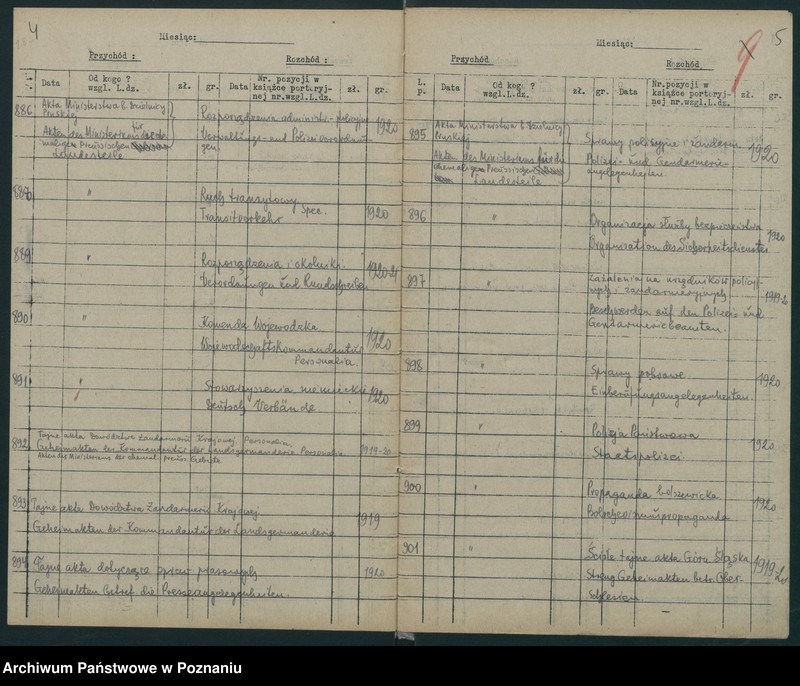 4
Miesiąc:
Przychód :
Rozchód :
Data
Od kogo ?
wzgl. L.dz.
zł.
gr.
Data
Nr. pozycji w
książce portoryj-
nej nr.wzgl.L.dz.
zł.
gr.
886
Akta Ministerstwa b. Dzielnicy
Pruskiej
Akten des Ministeriums für
Preussischen
Landesteile
Rozporządzenia administr.- policyjne
Verwaltungs- und Polizeiverordnun-
gen.
1920
888
"
Ruch tranzytowy
Transitverkehr
Spec.
1920
889
"
Rozporządzenia i okólniki
Verordnungen und Rundschreiben
1920-21
890
"
Komenda Wojewódzka
Wojewodschaftskommandantur
Personalia.
1920
891
"
Stowarzyszenia niemieckie
Deutsche Verbände
1920
892
Tajne akta Dowództwa Żandarmerii Krajowej. Personalia.
Geheimakten der Kommandantur der Landsgendarmerie Personalia.
Akten des Ministeriums der ehemal. preuss. Gebiete
1919-20
893
Tajne akta Dowództwa Żandarmerii Krajowej
Geheimakten der Kommandantur der Landsgendarmerie
1919
894
Tajne akta dotyczące spraw prasowych
Geheimakten betref. die Presseangelegenheiten.
1920
5
9
Miesiąc:
Przychód
Rozchód
L.
p.
Data
Od kogo ?
wzgl.L.dz.
zł.
gr.
Data
Nr.pozycji w
książce portoryj-
nej nr.wzgl.L.dz.
zł.
gr.
895
Akta Ministerstwa b. Dzielnicy
Pruskiej
Akten des Ministeriums für die
ehemaligen Preussischen
Landesteile
Sprawy policyjne i żandarm.
Polizei- und Gendarmerie-
angelegenheiten
1920
896
"
Organizacja służby bezpieczeństwa
Organisation des Sicherheitsdienstes
1920
897
"
Zażalenia na urzędników policyj-
nych i żandarmeryjnych
Beschwerden auf den Polizei und
Gendarmeriebeamten.
1919-20
898
"
Sprawy poborowe
Einberufungsangelegenheiten.
1920
899
"
Policja Państwowa
Staatspolizei
1920
900
"
Propaganda bolszewicka
Bolschewismuspropaganda
1920
901
"
Ściśle tajne akta Górn. Śląska
Streng Geheimakten betr. Ober-
schlesien
1919-20
Archiwum Państwowe w Poznaniu